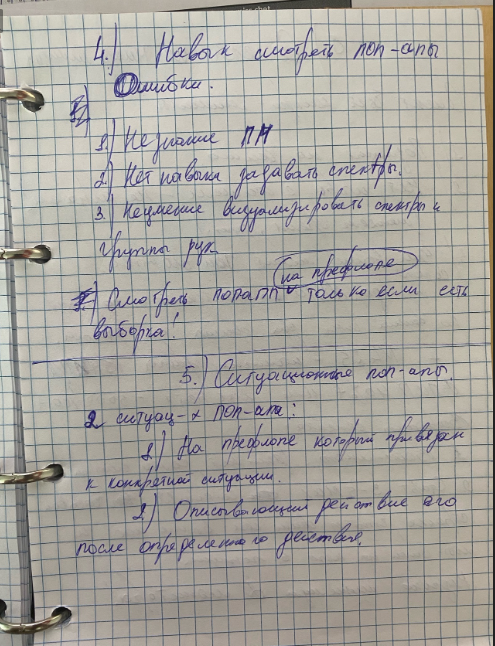 4.) Навык смотреть поп-апы
Ошибки.
1) Незнание ПН
2) Нет навыка задавать спектры.
3. Неумение визуализировать спектры и
группы рук
на префлопе
Смотреть попапп только если есть
выборка!
5.) Ситуационные поп-апы.
2 ситуац-х поп-апа:
1) На префлопе который привязан
к конкретной ситуации.
2) Описывающий действие его
после определенного действия.